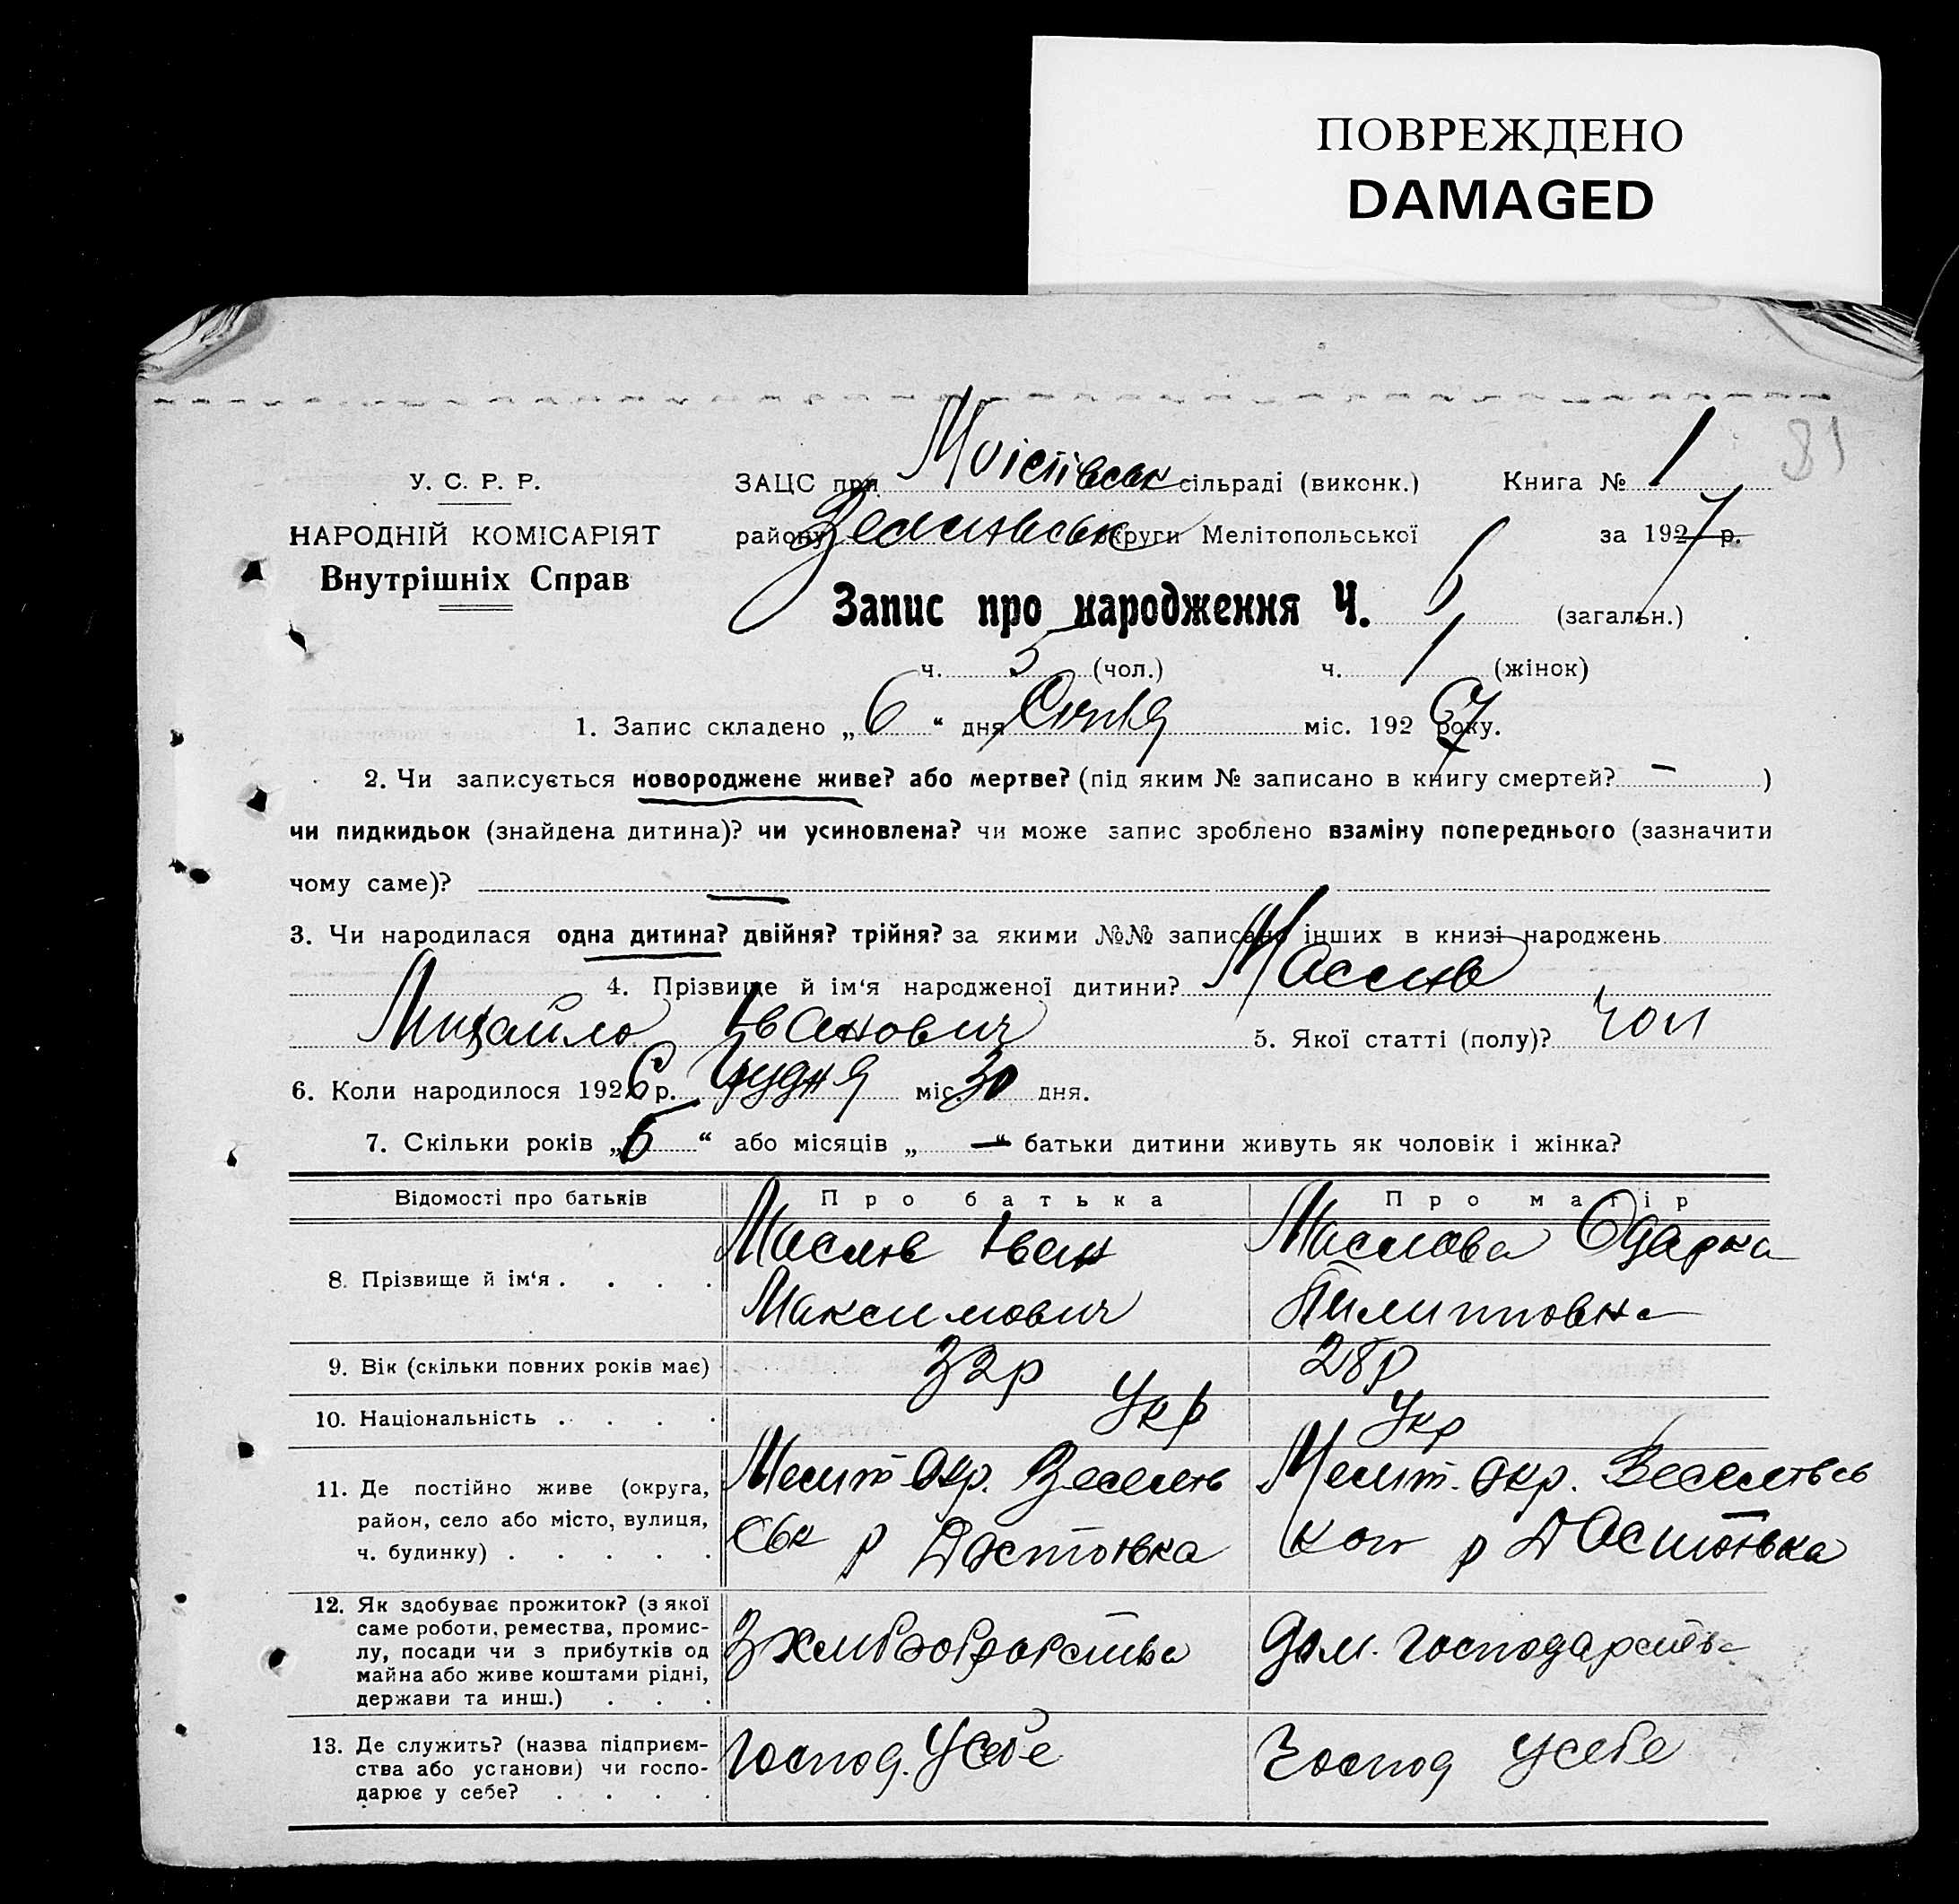 ПОВРЕЖДЕНО
DAMAGED
81
У. С. Р. Р.
НАРОДНІЙ КОМІСАРІЯТ
Внутрішніх Справ
ЗАЦС при сільраді (виконк.) Книга № 1
району округи Мелітопольської за 1927 р.
Запис про народження Ч. 6 (загальн.)
ч. 5 (чол.) ч. 1 (жінок)
1. Запис складено „ 6 “ дня Січня міс. 1927 року.
2. Чи записується новороджене живе? або мертве? (під яким № записано в книгу смертей? — )
чи пидкидьок (знайдена дитина)? чи усиновлена? чи може запис зроблено взаміну попереднього (зазначити
чому саме)? —
3. Чи народилася одна дитина? двійня? трійня? за якими №№ записано інших в книзі народжень
4. Прізвище й ім‘я народженої дитини? Маслів
Михайло Іванович 5. Якої статті (полу)? чол
6. Коли народилося 1926 р. Грудня міс. 30 дня.
7. Скільки років „ 5 “ або місяців „ — “ батьки дитини живуть як чоловік і жінка?
Відомості про батьків Про батька Про матір
8. Прізвище й ім‘я . . . . Маслів Іван Максимович Маслова Одарка Пилиповна
9. Вік (скільки повних років має) 32р 28р
10. Національність . . . . Укр Укр
11. Де постійно живе (округа, район, село або місто, вулиця, ч. будинку) . . . . . Меліт Окр. р Меліт. Окр. р
12. Як здобуває прожиток? (з якої саме роботи, ремества, промислу, посади чи з прибутків од майна або живе коштами рідні, держави та инш.) . . . З хліборобства Дом. господарства
13. Де служить? (назва підприємства або установи) чи господарює у себе? . . . . Господ. Усебе Господ Усебе